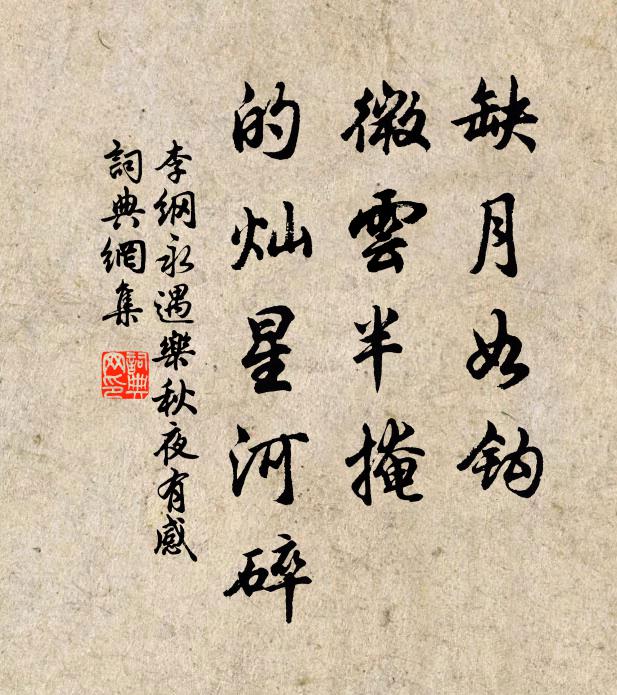 缺月如钩
微雲半掩
的灿星河碎
李纲永遇樂秋夜有感
詞典網集
詞典
网印